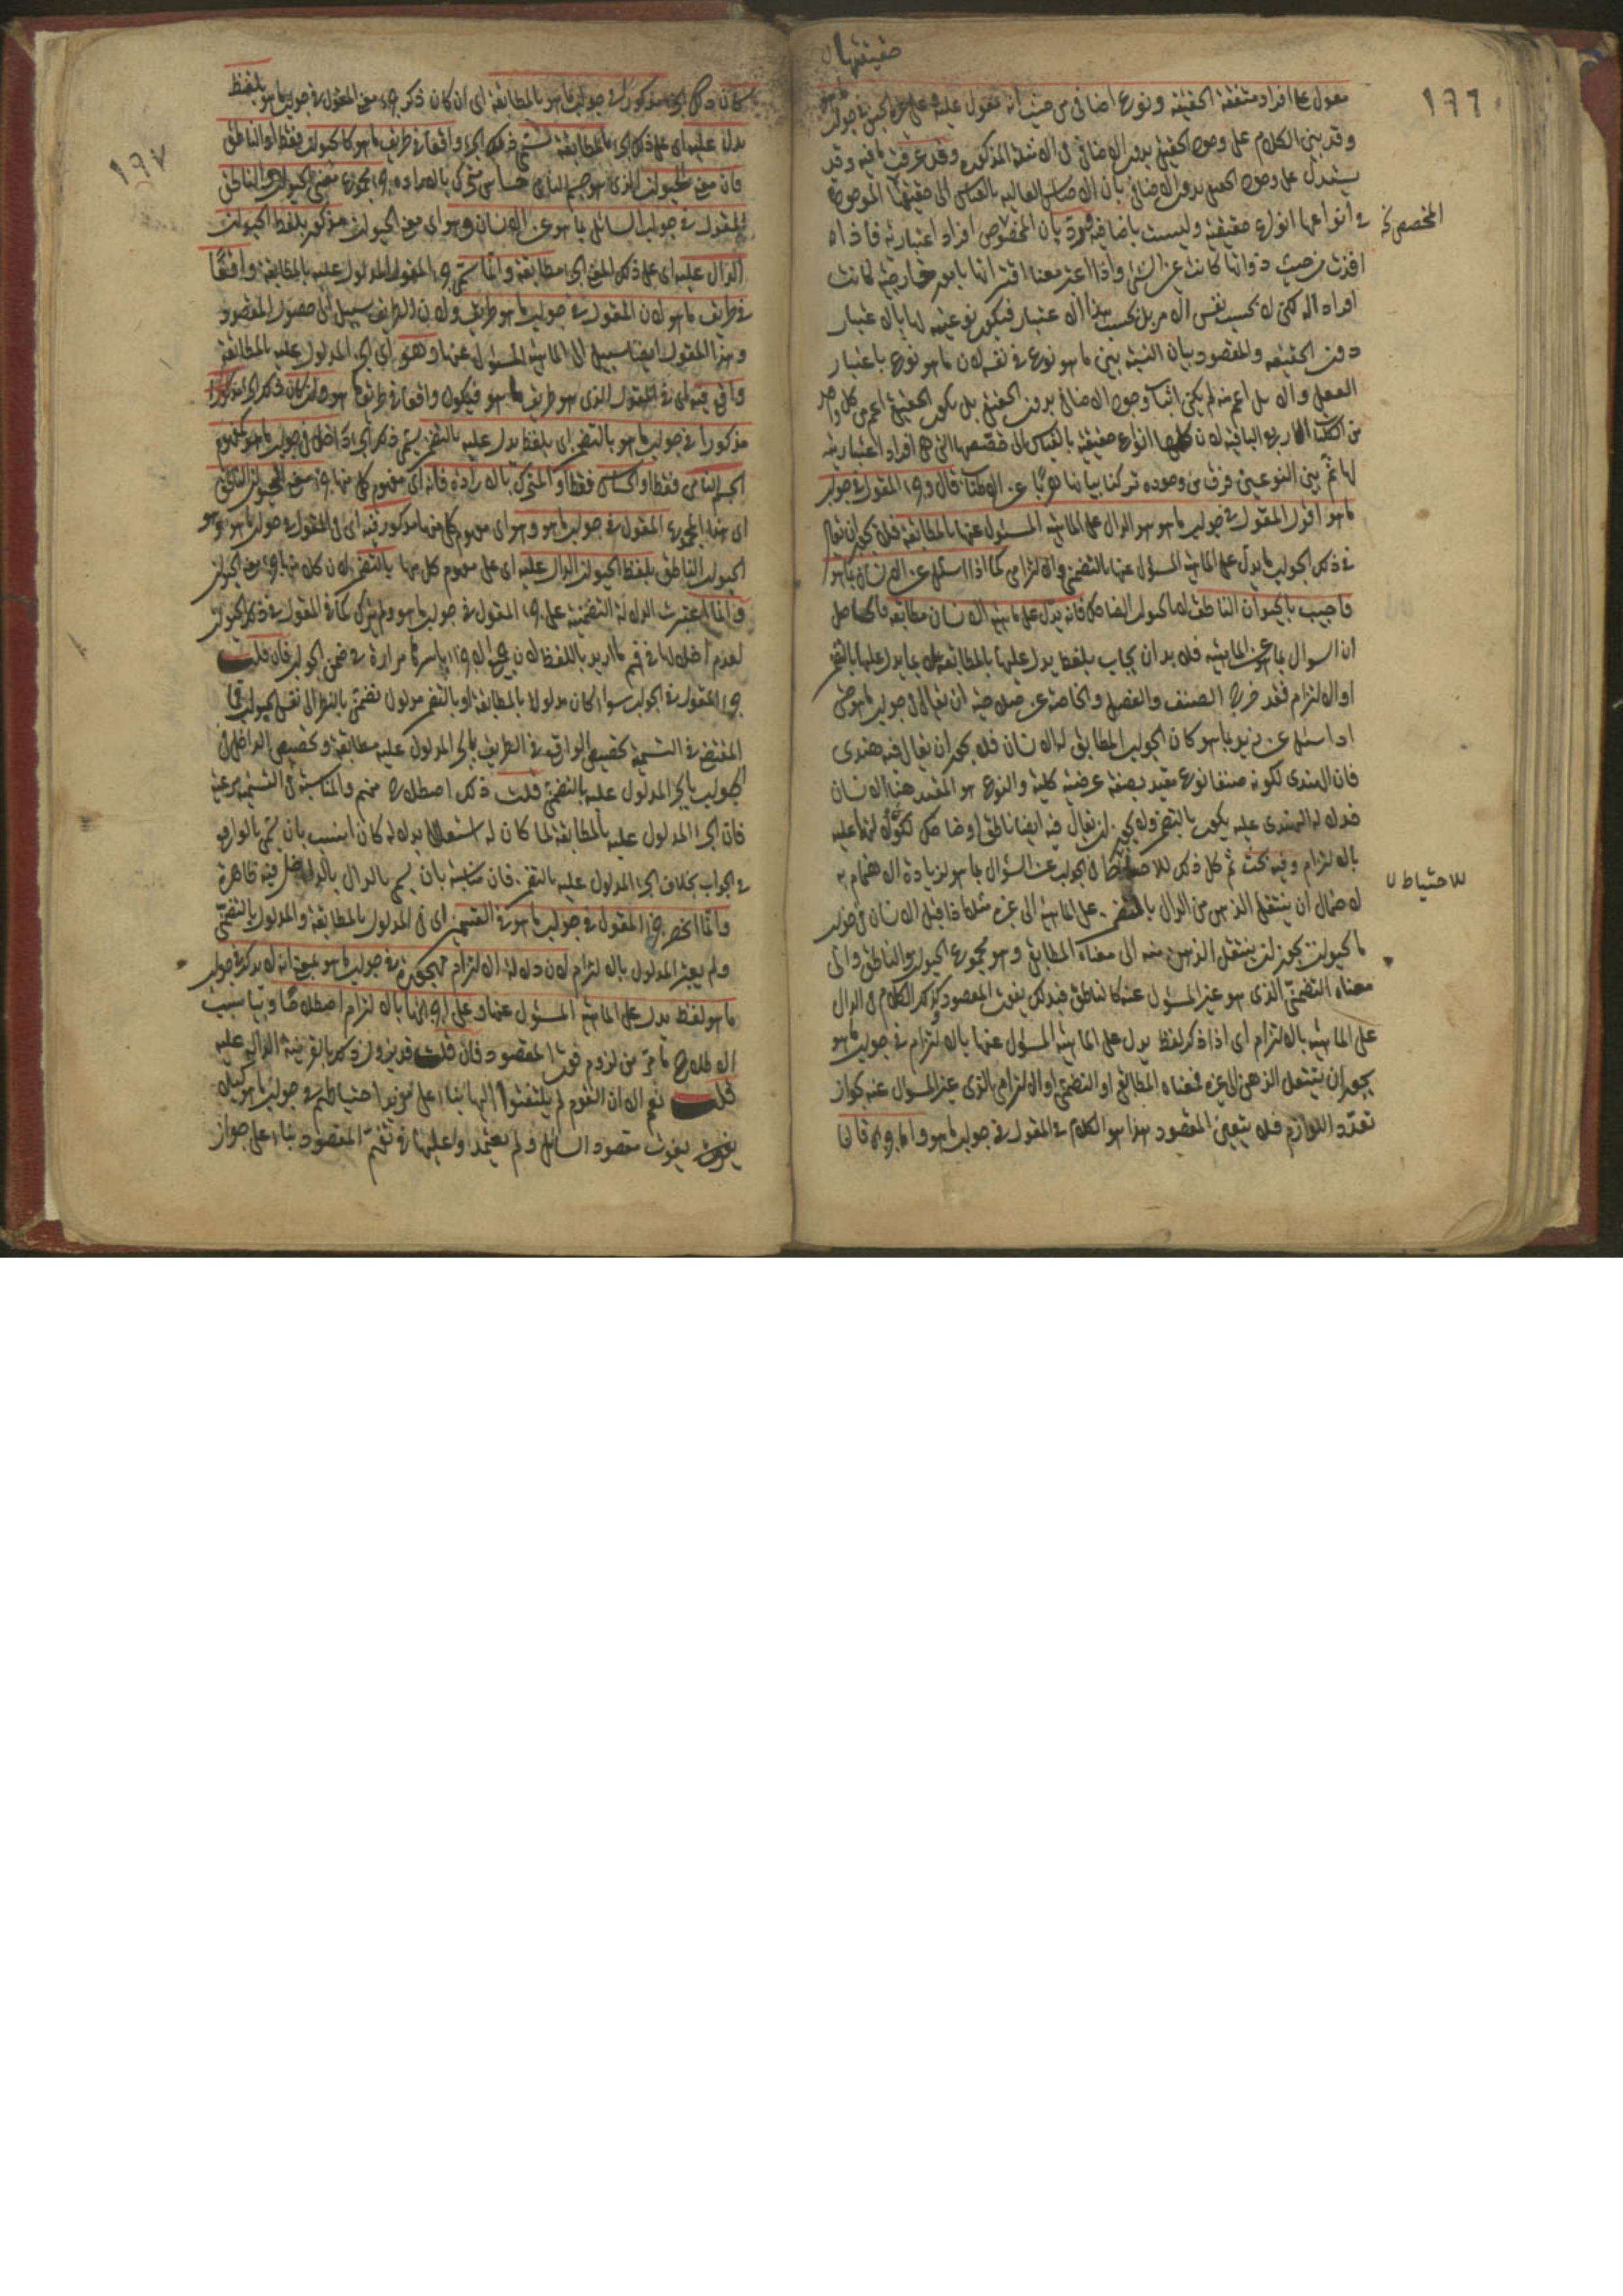 حقيقتها
١٦٦
مقول على افراد متفقة الحقيقة ونوع اضافى من حيث انه مقول عليه وعلى غيره الجنس فى جواب ما هو
وقد بنى الكلام على وجود الحقيقى بدون الاضافى فى الامثلة المذكورة وقد عرفت ما فيه وقد
يستدل على وجود الحقيقى بدون الاضافى بان الاجناس العالية بالقياس الى حصصها الموجودة
فى انواعها انواع حقيقية وليست باضافية بان الحصص افراد اعتبارية
المخصص
اخذت من حيث ذواتها كانت عين الشئ واذا اعتبر معها اقترانها بامور خارجية كانت
افراد اله لكن لا بحسب نفس الامر بل بحسب هذا الاعتبار فيكون نوعيته لها بالاعتبار
دون الحقيقة والمقصود بيان النسبة بين ما هو نوع فى نفسه لا ما هو نوع باعتبار
العقل والا لم يمكن اثبات وجود الاضافى بدون الحقيقى بل يكون الحقيقى اعم من كل واحد
من الكليات الاربع الباقية لان كلها انواع حقيقية بالقياس الى حصصها التى هى افراد اعتبارية
لها ثم بين النوعين فرق من وجوه تركنا بيانها هربا عن الاطناب قال وجزء المقول فى جواب
ما هو اقول المقول فى جواب ما هو هو الدال على الماهية المسئول عنها بالمطابقة فلا يجوز ان يقال
فى ذلك الجواب ما يدل على الماهية المسؤل عنها بالتضمن والالتزام كما اذا سئل عن الانسان بما هو
فاجيب بالحيوان الناطق فانه يدل على ماهية الانسان مطابقة
ان السوال بما هو عن الماهية فلا بد ان يجاب بلفظ يدل عليها بالمطابقة لا بما يدل عليها بالتضمن
او الالتزام فقد خرج الصنف والفصل والخاصة عن صلاحية ان يقال فى جواب ما هو حتى
اذا سئل عن زيد بما هو كان الجواب المطابق له الانسان فلا يجوز ان يقال فيه هندى
فان الهندى لكونه صنفا نوع مقيد بصفة عرضية كلية والنوع هو المقيد هنا الانسان
فدلالة الهندى عليه يكون بالتضمن ولا يجوز ان يقال فيه ايضا ناطق او ضاحك لكونه دالا عليه
بالالتزام وفيه بحث ثم كل ذلك للاحتياط فى الجواب عن السؤال بما هو لزيادة الاهتمام به
للاحتياط
لاحتمال ان ينتقل الذهن من الدال بالتضمن على الماهية الى غيره مثلا اذا قيل الانسان فى جواب
ما الحيوان يجوز ان ينتقل الذهن منه الى معناه المطابقى وهو مجموع الحيوان والناطق والى
معناه التضمنى الذى هو غير المسئول عنه كالناطق فبذلك يفوت المقصود وكذلك الكلام فى الدال
على الماهية بالالتزام اى اذا ذكر لفظ يدل على الماهية المسؤل عنها بالالتزام فى جواب ما هو
يجوز ان ينتقل الذهن الى غيره فمعناه المطابقى او التضمنى او الالتزامى الذى غير المسؤال عنه لجواز
تعدد اللوازم فلا يتعين المقصود هذا هو الكلام فى المقول فى جواب ما هو واما جزءه فان
١٦٧
كان ذلك الجزء مذكورا فى جواب ما هو بالمطابقة اى ان كان ذكر جزء معنى المقول فى جواب ما هو بلفظ
يدل عليه اى على ذلك الجزء بالمطابقة يسمى ذلك الجزء واقعا فى طريق ما هو كالحيوان فقط او الناطق
فان معنى الحيوان الذى هو جسم نامى حساس متحرك بالارادة جزء مجموع معنى الحيوان والناطق
المقول فى جواب السائل بما هو عن الانسان وهو اى معنى الحيوان مذكور بلفظ الحيوان
الدال عليه اى على ذلك المعنى الجزء مطابقة وانما سمى جزء المقول المدلول عليه بالمطابقة واقعا
فى طريق ما هو لان المقول فى جواب ما هو طريق ما هو ولان الطريق سبيل الى حصول المقصود
وهذا المقول ايضا سبيل الى الماهية المسئول عنها وهو اى الجزء المدلول عليه بالمطابقة
واقع فيه اى فى المقول الذى هو طريق ما هو فيكون واقعا فى طريق ما هو وان كان ذلك الجزء مذكورا
مذكورا فى جواب ما هو بالتضمن اى بلفظ يدل عليه بالتضمن يسمى ذلك الجزء داخلا فى جواب ما هو كمفهوم
الجسم النامى فقط او الحساس فقط او المتحرك بالارادة فانه اى مفهوم كل منها جزء معنى الحيوان الناطق
اى هذا المجموع المقول فى جواب ما هو وهو اى مفهوم كل منهما مذكور فيه اى فى المقول فى جواب ما هو وهو
الحيوان الناطق بلفظ الحيوان الدال عليه اى على مفهوم كل منها بالتضمن لان كل منها جزء معنى الحيوان
وانما اعتبرت الدلالة التضمنية على جزء المقول فى جواب ما هو ولم يترك كما فى المقول فى ذلك الجواب
لعدم اخلالها فى فهم ما اريد باللفظ لان جميع الاجزاء باسرها مرادة فى ضمن الجواب فان قلت
جزء المقول فى الجواب سواء كان مدلولا بالمطابقة او بالتضمن مدلول تضمنى بالنظر الى نفس الجواب فما
المقتضى فى التسمية تخصيص الواقع فى الطريق بالجزء المدلول عليه مطابقة وتخصيص الداخل فى
الجواب بالجزء المدلول عليه بالتضمن قلت ذلك اصطلاح منهم والمناسبة فى التسمية مرعية
فان الجزء المدلول عليه بالمطابقة لما كان له استقلال بدلالة كان انسب بان يسمى بالواقع
فى الجواب بخلاف الجزء المدلول عليه بالتضمن فان مناسبته بان يسمى بالدال بالداخل فيه ظاهرة
وانما انحصر جزء المقول فى جواب ما هو فى القسمين اى فى المدلول بالمطابقة والمدلول بالتضمن
ولم يعتبر المدلول بالالتزام لان دلالة الالتزام مهجورة فى جواب ما هو بمعنى انه لا يذكر فى جواب
ما هو لفظ يدل على الماهية المسؤل عنها وعلى اجزائها بالالتزام اصطلاحا
الاصطلاح ما مر من لزوم فوت المقصود فان قلت قد يزول ذلك بالقرينة الدالة عليه
قلت نعم الا ان القوم لم يلتفتوا اليها بناء على مزيد احتياطهم فى جواب ما هو كيلا
يفوت مقصود السائل ولم يعتمدوا عليها فى تفهم المقصود بناء على جواز